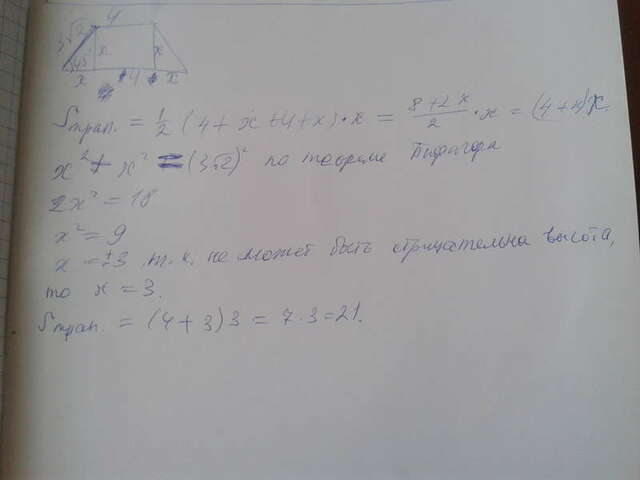 4
3√2 x x
45°
x 4 x
Sтрап. = 1/2 (4 + x + 4 + x) · x = (8 + 2x)/2 · x = (4 + x)x.
x² + x² = (3√2)² по теореме Пифагора
2x² = 18
x² = 9
x = ±3, т. к. не может быть отрицательна высота,
то x = 3.
Sтрап. = (4 + 3)3 = 7 · 3 = 21.